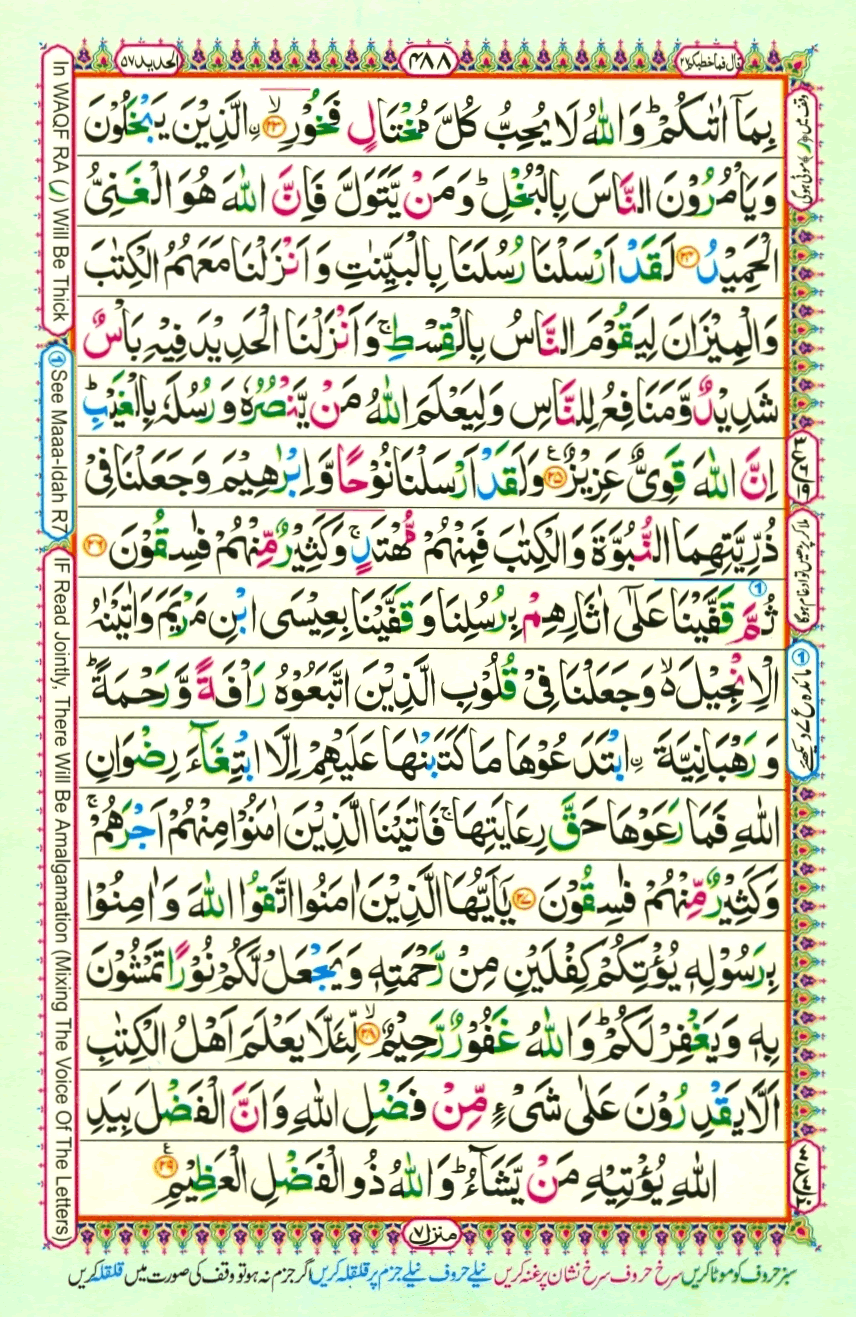 قال فما خطبكم ٢٧
٤٨٨
الحديد ٥٧
بِمَاۤ اٰتٰىكُمْ ؕ وَاللّٰهُ لَا يُحِبُّ كُلَّ مُخْتَالٍ فَخُوْرِ ۙ﴿۲۳﴾ۨ الَّذِيْنَ يَبْخَلُوْنَ
وَيَاْمُرُوْنَ النَّاسَ بِالْبُخْلِ ؕ وَمَنْ يَّتَوَلَّ فَاِنَّ اللّٰهَ هُوَ الْغَنِىُّ
الْحَمِيْدُ ﴿۲۴﴾ لَقَدْ اَرْسَلْنَا رُسُلَنَا بِالْبَيِّنٰتِ وَاَنْزَلْنَا مَعَهُمُ الْكِتٰبَ
وَالْمِيْزَانَ لِيَقُوْمَ النَّاسُ بِالْقِسْطِ ۚ وَاَنْزَلْنَا الْحَدِيْدَ فِيْهِ بَاْسٌ
شَدِيْدٌ وَّمَنَافِعُ لِلنَّاسِ وَلِيَعْلَمَ اللّٰهُ مَنْ يَّنْصُرُهٗ وَرُسُلَهٗ بِالْغَيْبِ ؕ
اِنَّ اللّٰهَ قَوِىٌّ عَزِيْزٌ ﴿۲۵﴾ وَلَقَدْ اَرْسَلْنَا نُوْحًا وَّاِبْرٰهِيْمَ وَجَعَلْنَا فِىْ
ذُرِّيَّتِهِمَا النُّبُوَّةَ وَالْكِتٰبَ فَمِنْهُمْ مُّهْتَدٍ ۚ وَكَثِيْرٌ مِّنْهُمْ فٰسِقُوْنَ ﴿۲۶﴾
ثُمَّ قَفَّيْنَا عَلٰۤى اٰثَارِهِمْ بِرُسُلِنَا وَقَفَّيْنَا بِعِيْسَى ابْنِ مَرْيَمَ وَاٰتَيْنٰهُ
الْاِنْجِيْلَ ۙ۬ وَجَعَلْنَا فِىْ قُلُوْبِ الَّذِيْنَ اتَّبَعُوْهُ رَاْفَةً وَّرَحْمَةً ؕ
وَرَهْبَانِيَّةَ ۨ ابْتَدَعُوْهَا مَا كَتَبْنٰهَا عَلَيْهِمْ اِلَّا ابْتِغَآءَ رِضْوَانِ
اللّٰهِ فَمَا رَعَوْهَا حَقَّ رِعَايَتِهَا ۚ فَاٰتَيْنَا الَّذِيْنَ اٰمَنُوْا مِنْهُمْ اَجْرَهُمْ ۚ
وَكَثِيْرٌ مِّنْهُمْ فٰسِقُوْنَ ﴿۲۷﴾ يٰۤاَيُّهَا الَّذِيْنَ اٰمَنُوا اتَّقُوا اللّٰهَ وَاٰمِنُوْا
بِرَسُوْلِهٖ يُؤْتِكُمْ كِفْلَيْنِ مِنْ رَّحْمَتِهٖ وَيَجْعَلْ لَّكُمْ نُوْرًا تَمْشُوْنَ
بِهٖ وَيَغْفِرْ لَكُمْ ؕ وَاللّٰهُ غَفُوْرٌ رَّحِيْمٌ ۙ﴿۲۸﴾ لِّئَلَّا يَعْلَمَ اَهْلُ الْكِتٰبِ
اَلَّا يَقْدِرُوْنَ عَلٰى شَىْءٍ مِّنْ فَضْلِ اللّٰهِ وَاَنَّ الْفَضْلَ بِيَدِ
اللّٰهِ يُؤْتِيْهِ مَنْ يَّشَآءُ ؕ وَاللّٰهُ ذُو الْفَضْلِ الْعَظِيْمِ ﴿۲۹﴾
منزل ٧
سبز حروف کو موٹا کریں سرخ حروف سرخ نشان پر غنہ کریں نیلے حروف نیلے جزم پر قلقلہ کریں اگر جزم نہ ہو تو وقف کی صورت میں قلقلہ کریں
وقف میں (ر) موٹی ہوگی
ملا کر پڑھیں تو ادغام ہوگا
① مائدہ ع ۷ دیکھئے
In WAQF RA (ر) Will Be Thick
① See Maaa-Idah R7
IF Read Jointly, There Will Be Amalgamation (Mixing The Voice Of The Letters)